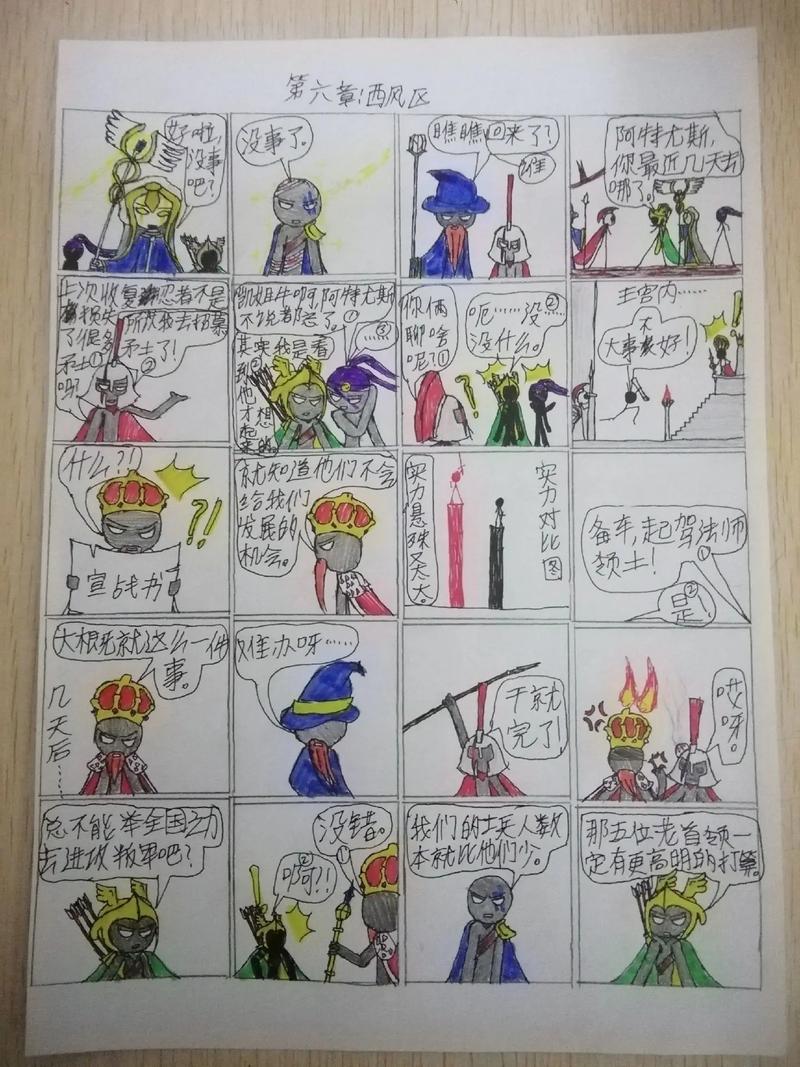 第六章:西风区
好啦,
没事
吧?
没事了。
瞧瞧回来了?
谁
阿特尤斯,
你最近几天去
哪了。
上次收复忍者不是
损失
了很多
矛士①
吗?
所以我去招募
矛士了!
②
阿特尤斯
不说都忘了。①
其实我是看
到他
②
才想
起来的。
③
……
你俩
聊啥
呢?①
呃……没②
没什么。
王宫内……
不
大事好!
什么?!
?!
宣战书
就知道他们不会
给我们
发展的
机会。
实力悬殊又太大。
实力对比图
备车,起驾法师
领土!
①
②
是!
大根死就这么一件
事。
几天后……
难办呀……
干就
完了!
哎
呀。
总不能举全国之力
去进攻叛军吧?
没错。
①
②
啊?!
我们的士兵人数
本就比他们少。
那五位老首领一
定有更高明的打算。